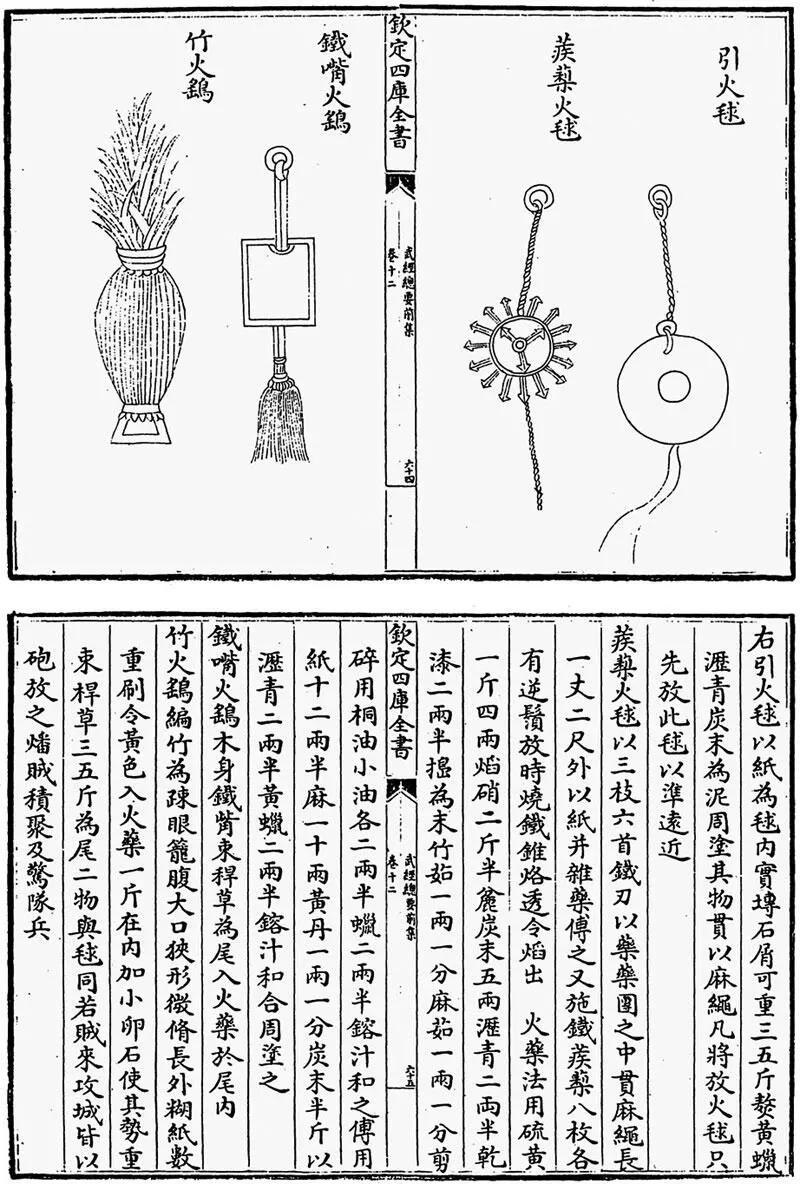 引火毬
蒺蔾火毬
欽定四庫全書
武經總要前集
卷十二
六十四
鐵嘴火鷂
竹火鷂
右引火毬以紙為毬内實塼石屑可重三五斤熬黃蠟
瀝青炭末為泥周塗其物貫以麻繩凡將放火毬只
先放此毬以準逺近
蒺蔾火毬以三枝六首鐵刃以藥藥團之中貫麻繩長
一丈二尺外以紙并雜藥傅之又施鐵蒺蔾八枚各
有逆鬚放時燒鐵錐烙透令焰出 火藥法用硫黃
一斤四兩焰硝二斤半麄炭末五兩瀝青二兩半乾
漆二兩半搗為末竹茹一兩一分麻茹一兩一分剪
欽定四庫全書
武經總要前集
卷十二
六十五
碎用桐油小油各二兩半蠟二兩半鎔汁和之傅用
紙十二兩半麻一十兩黃丹一兩一分炭末半斤以
瀝青二兩半黃蠟二兩半鎔汁和合周塗之
鐵嘴火鷂木身鐵觜束稈草為尾入火藥於尾内
竹火鷂編竹為疎眼籠腹大口狹形微脩長外糊紙數
重刷令黃色入火藥一斤在内加小卵石使其勢重
束稈草三五斤為尾二物與毬同若賊來攻城皆以
砲放之燔賊積聚及驚隊兵